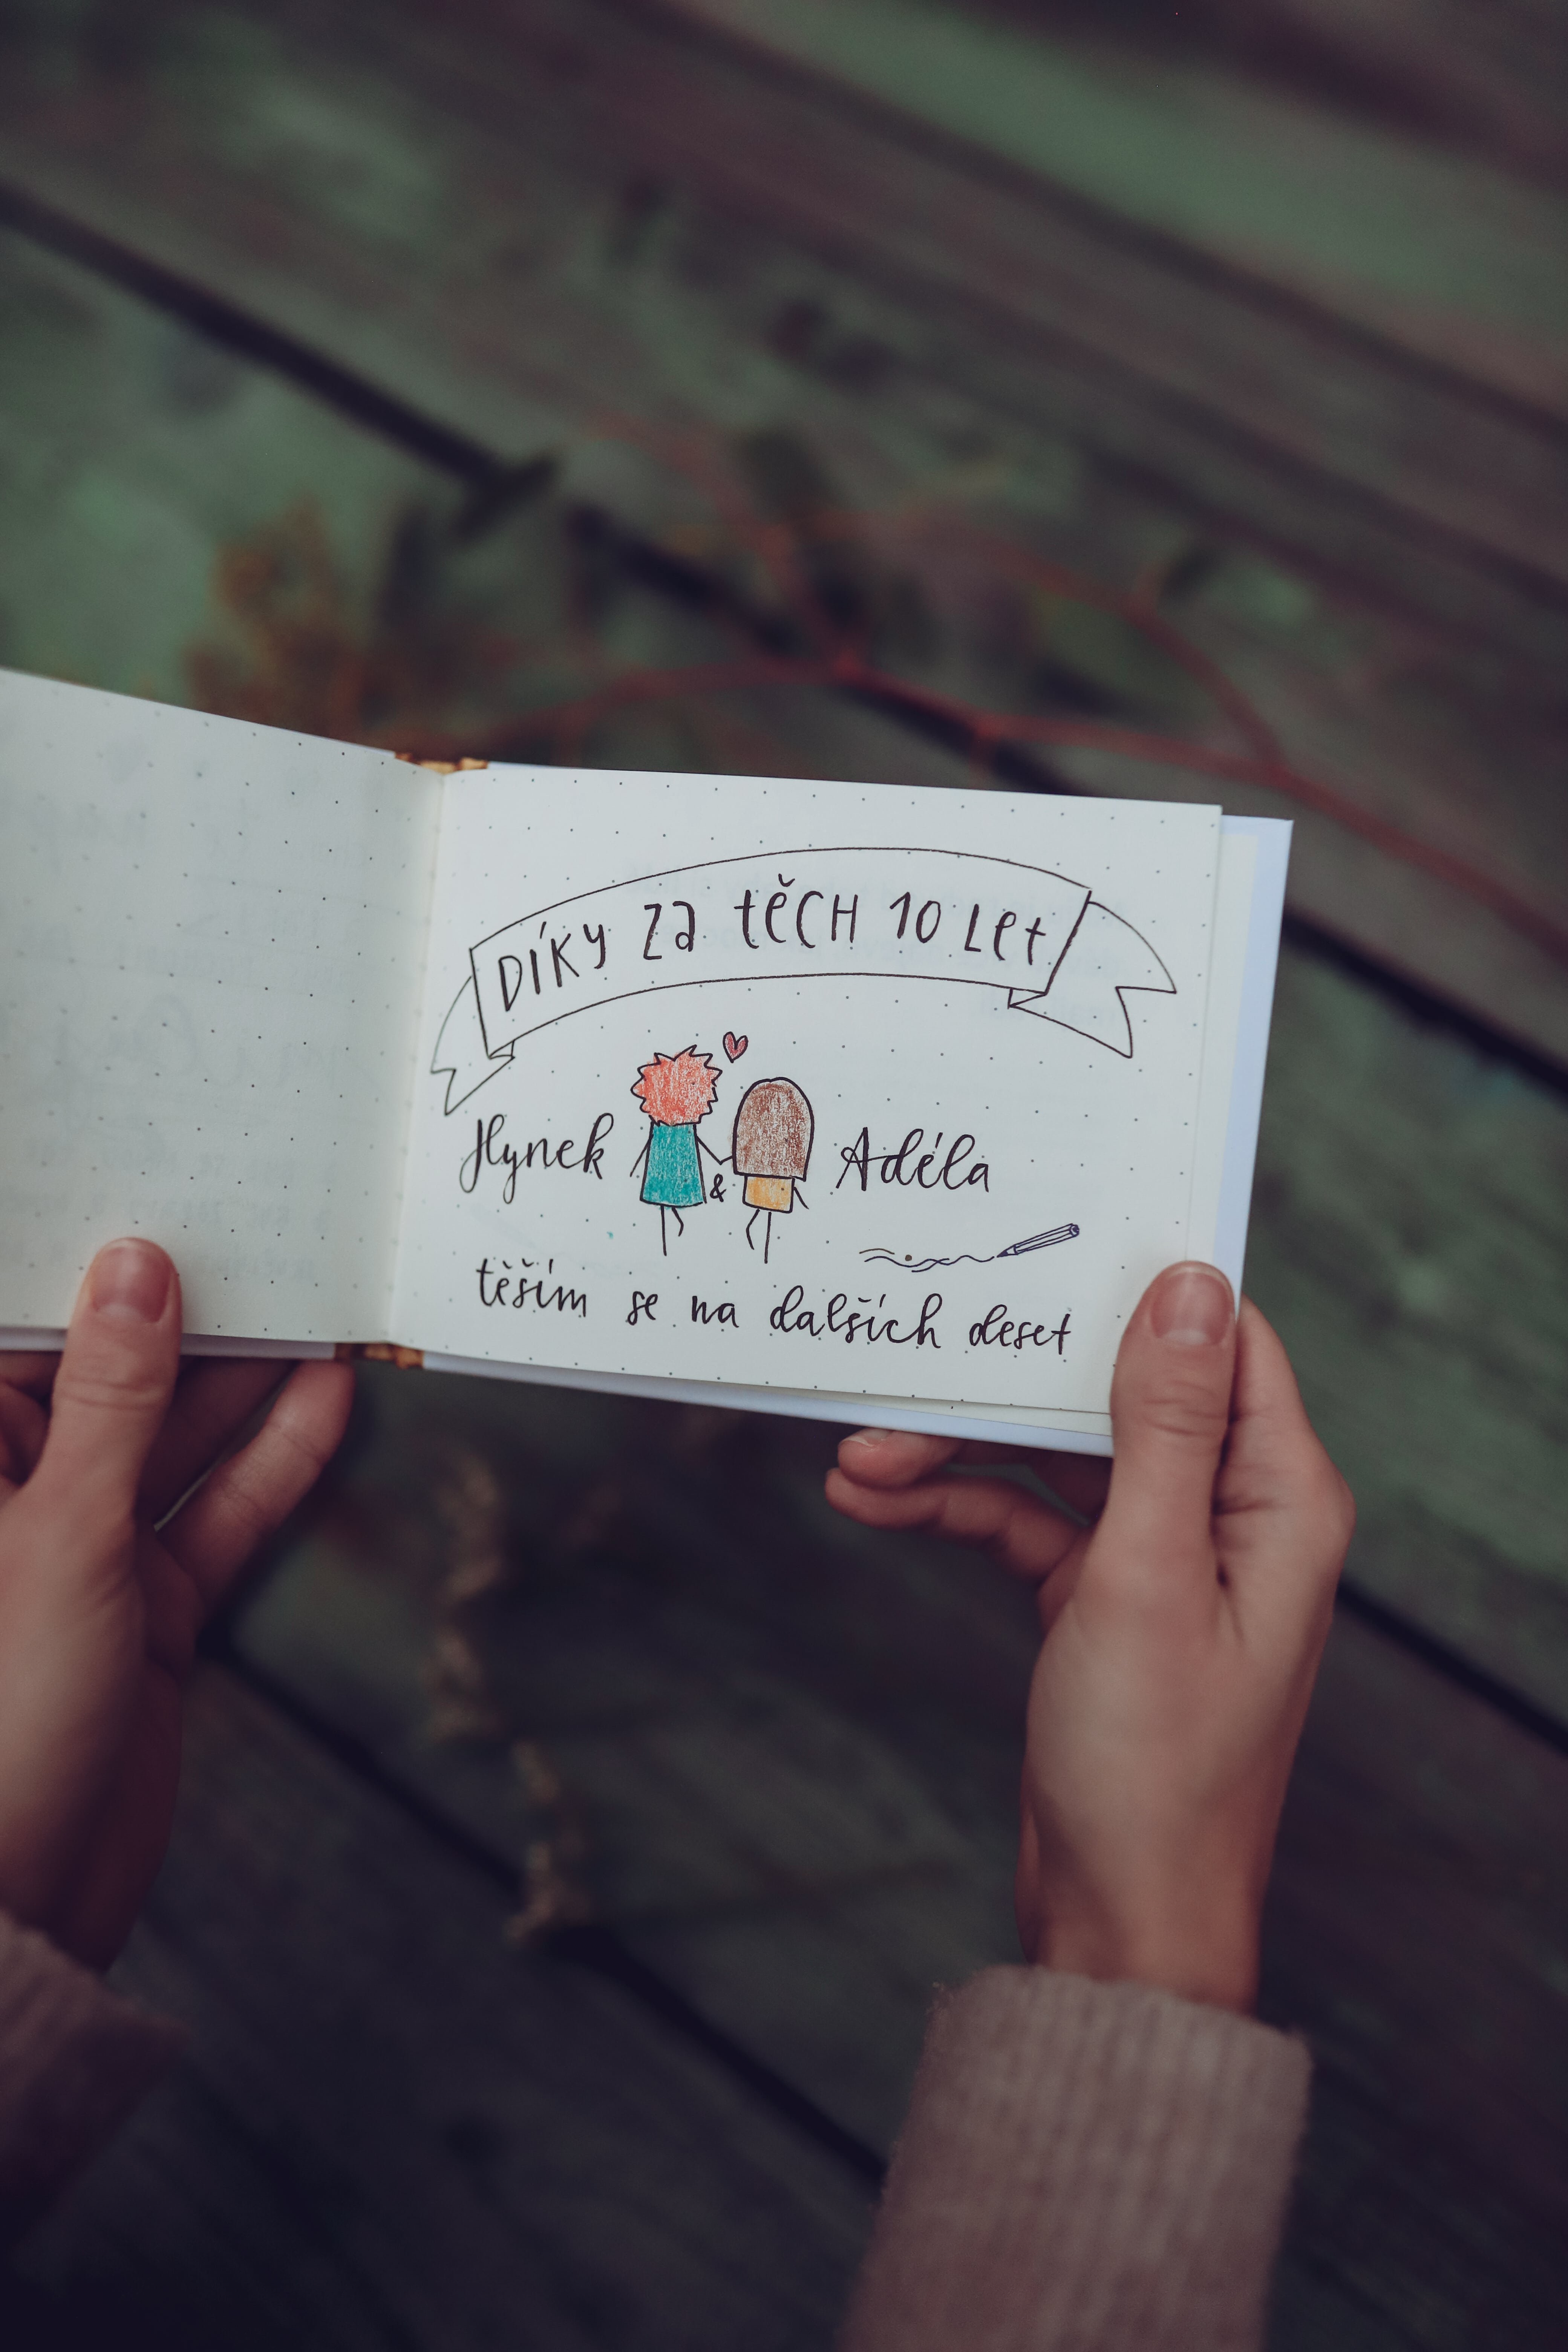 DÍKY Za těCH 10 Let
Hynek & Adéla
těším se na dalších deset